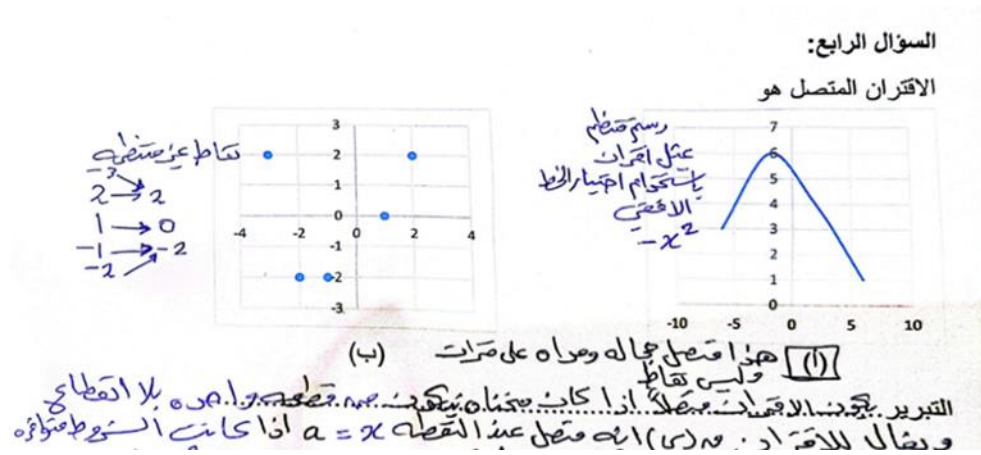 السؤال الرابع:
الاقتران المتصل هو
رسم منتظم
يمثل اقتران
باستخدام اختبار الخط
الافقي
-x²
7
6
5
4
3
2
1
0
-10 -5 0 5 10
نقاط غير منتظمة
-3
2 → 2
1 → 0
-1 → -2
-2
3
2
1
0
-1
-2
-3
-4 -2 0 2 4
(أ) هذا متصل مجاله ومداه على فترات
وليس نقاط
(ب)
التبرير يكون الاقتران متصلاً اذا كان منحناه يتكون من قطعه واحده بلا انقطاع
ويقال للاقتران (س) انه متصل عند النقطة a = x اذا كانت الشروط متوافره